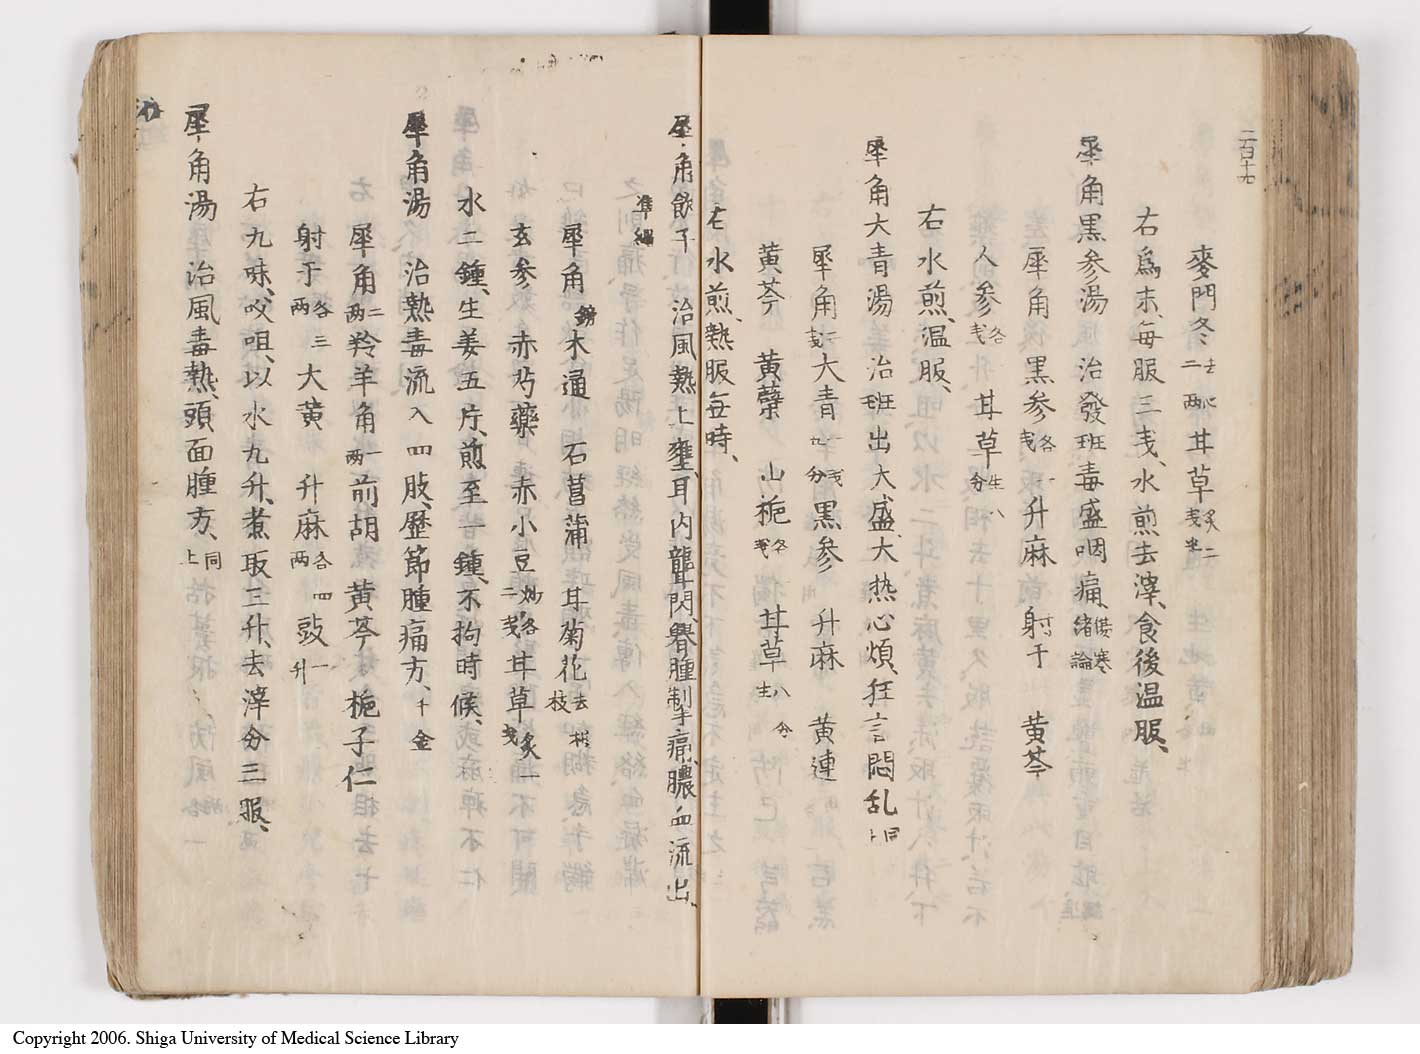 二百十六
麥門冬去心二両 甘草炙二戔半
右爲末、毎服三戔、水煎去滓、食後温服、
犀角黒参湯 治發班毒盛咽痛、
犀角 黒参各一戔 升麻 射干 黄芩
人参各戔 甘草生八分
右水煎、温服、
犀角大青湯 治班出大盛、大热心煩、狂言悶乱同上
犀角 大青 黒参 升麻 黄連
黄芩 黄蘗 山梔各戔 甘草生八分
右水煎、熱服毎時、
犀角飲子 治風熱上壅、耳内聾閉、腫制手痛、膿血流出、
準繩
犀角鎊 木通 石菖蒲 甘菊花去枝梗
玄参 赤芍藥 赤小豆炒各二戔 甘草炙一戔
水二鍾、生姜五片、煎至一鍾、不拘時候、
犀角湯 治熱毒流入四肢、歴節腫痛方、千金
犀角二両 羚羊角一両 前胡 黄芩 梔子仁
射干各三両 大黄 升麻各四両 豉一升
右九味、㕮咀、以水九升、煮取三升、去滓分三服、
犀角湯 治風毒熱、頭面腫方、同上
Copyright 2006. Shiga University of Medical Science Library